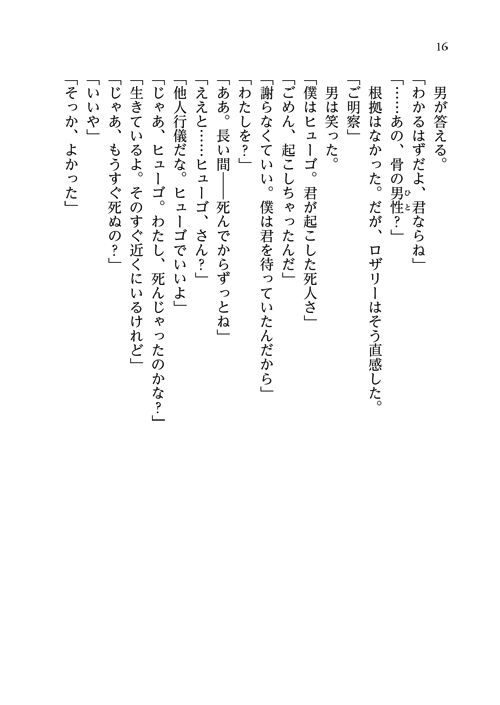 16
男が答える。
「わかるはずだよ、君ならね」
「……あの、骨の男性ひと？」
根拠はなかった。だが、ロザリーはそう直感した。
「ご明察」
男は笑った。
「僕はヒューゴ。君が起こした死人さ」
「ごめん、起こしちゃったんだ」
「謝らなくていい。僕は君を待っていたんだから」
「わたしを？」
「ああ。長い間――死んでからずっとね」
「ええと……ヒューゴ、さん？」
「他人行儀だな。ヒューゴでいいよ」
「じゃあ、ヒューゴ。わたし、死んじゃったのかな？」
「生きているよ。そのすぐ近くにいるけれど」
「じゃあ、もうすぐ死ぬの？」
「いいや」
「そっか、よかった」